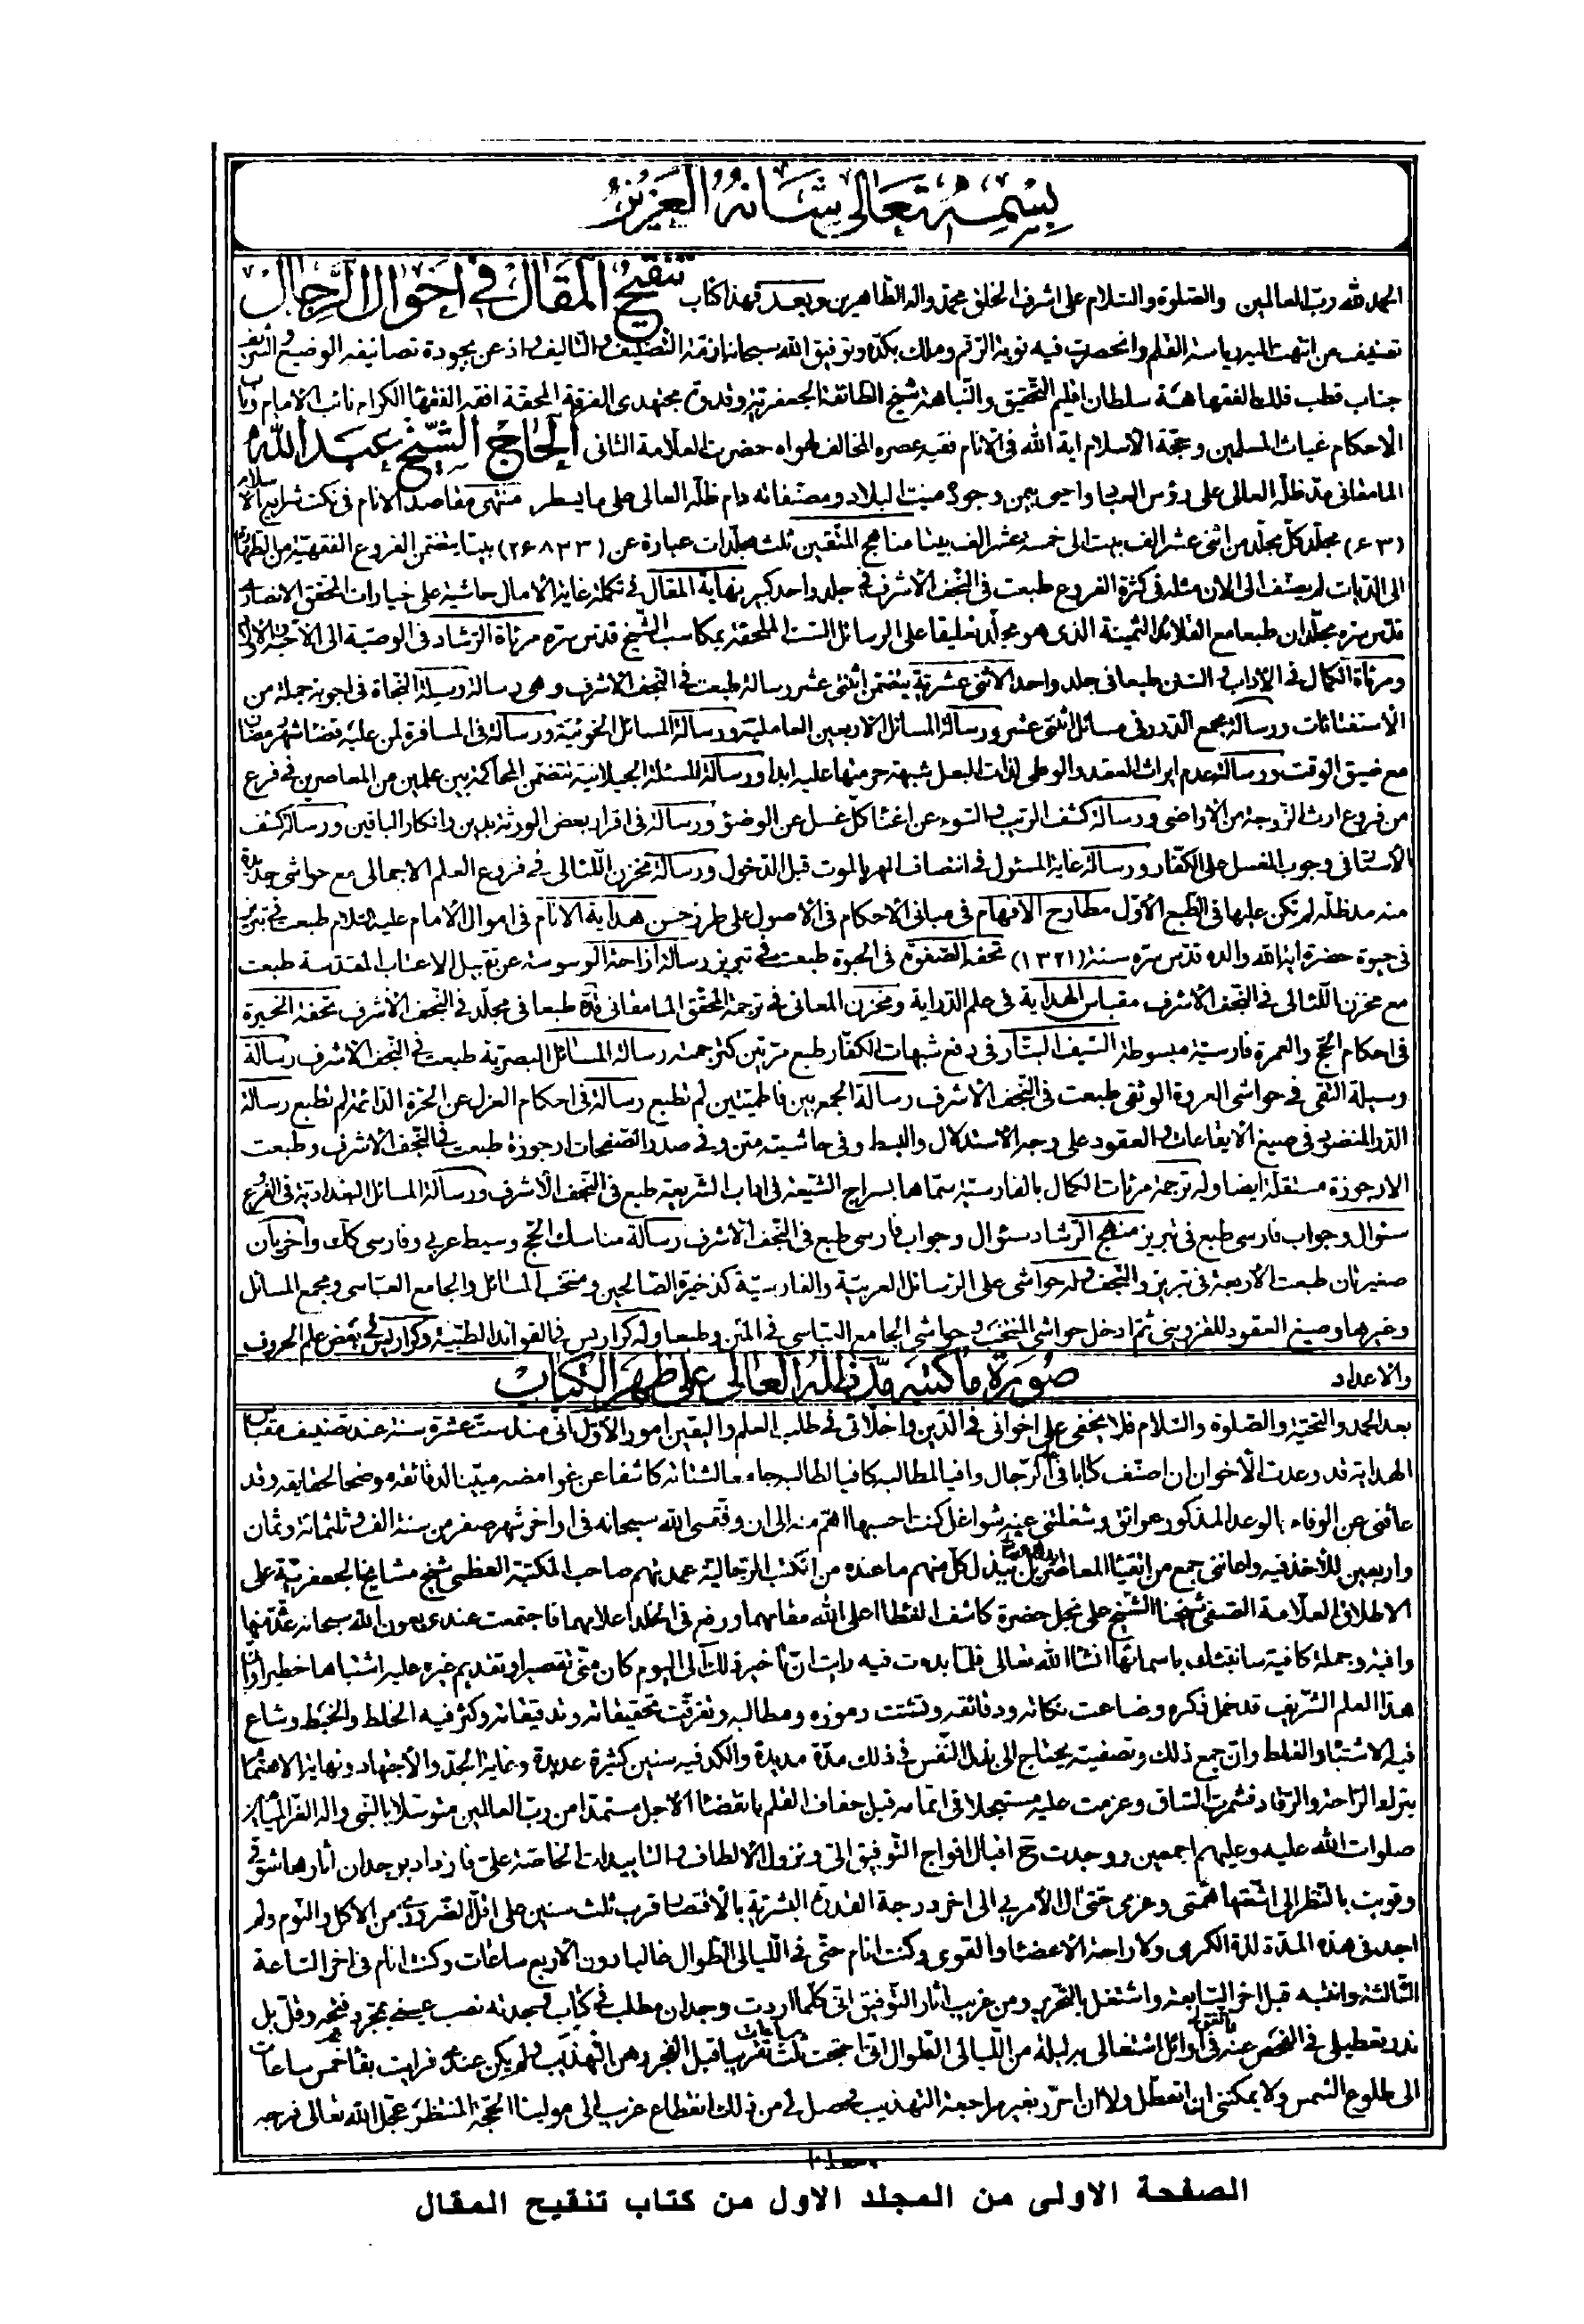 بسمه تعالى شانه العزيز
الحمد لله رب العالمين والصلوة والسلام على اشرف الخلق محمد واله الطاهرين وبعد فهذا كتاب تنقيح المقال في احوال الرجال
تصنيف من انتهت اليه رياسة القلم وانحصرت فيه نوبة الرقم وملك بكده وتوفيق الله سبحانه ازمة التصنيف والتاليف واذعن بجودة تصانيفه الوضيع والشريف
جناب قطب فلك الفقاهة سلطان اقليم التحقيق والنباهة شيخ الطائفة الجعفرية وقدوة مجتهدى الفرقة المحقة افقه الفقهاء الكرام نائب الامام وباب
الاحكام غياث المسلمين وحجة الاسلام اية الله في الانام فقيه عصره المخالف لهواه حضرت العلامة الثانى الحاج الشيخ عبد الله
المامقانى مد ظله العالى على رؤس العباد واحيى بيمن وجوده ميت البلاد ومصنفاته دام ظله العالى على ما يسطر منتهى مقاصد الانام في نكت شرايع الاسلام
(٦٣) مجلد كل مجلد من اثنى عشر الف بيت الى خمسة عشر الف بيت مناهج المتقين ثلث مجلدات عبارة عن (٢٦٨٣٣) بيتا يتضمن الفروع الفقهية من الطهارة
الى الديات لم يصنف الى الان مثله في كثرة الفروع طبعت في النجف الاشرف في جلد واحد كبير نهاية المقال في تكملة غاية الامال حاشية على خيارات المحقق الانصارى
قدس سره مجلدان طبعا مع القلائد الثمينة الذى هو مجلد تعليقا على الرسائل الست الملحقة بمكاسب الشيخ قدس سره مرئاة الرشاد في الوصية الى الاحبة والاولاد
ومرئاة الكمال في الاداب والسنن طبعا في جلد واحد الاثنى عشرية يتضمن اثنتى عشر رسالة طبعت في النجف الاشرف وهى رسالة وسيلة النجاة في اجوبة جملة من
الاستفتائات ورسالة مجمع الدرر في مسائل اثنتى عشر ورسالة المسائل الاربعين العاملية ورسالة المسائل الخوئية ورسالة في المسافرة لمن عليه قضاء شهر رمضان
مع ضيق الوقت ورسالة عدم ايراث العقد والوطى لذات البعل شبهة حرمتها عليه ابدا ورسالة المسئلة الجيلانية تتضمن المحاكمة بين علمين من المعاصرين في فرع
من فروع ارث الزوجة من الاراضى ورسالة كشف الريب والسوء عن اغناء كل غسل عن الوضوء ورسالة في اقرار بعض الورثة بدين وانكار الباقين ورسالة كشف
الاستار في وجوب الغسل على الكفار ورسالة غاية المسئول في انتصاف المهر بالموت قبل الدخول ورسالة مخزن اللئالى في فروع العلم الاجمالى مع حواشى جديدة
منه مد ظله لم تكن عليها في الطبع الاول مطارح الافهام في مبانى الاحكام في الاصول على طرز حسن هداية الانام في اموال الامام عليه السلام طبعت في تبريز
في حيوة حضرة اية الله والده قدس سره سنة (١٣٢١) تحفة الصفوة في الحبوة طبعت في تبريز رسالة ازاحة الوسوسة عن تقبيل الاعتاب المقدسة طبعت
مع مخزن اللئالى في النجف الاشرف مقباس الهداية في علم الدراية ومخزن المعانى في ترجمة المحقق المامقانى قده طبعا في مجلد في النجف الاشرف تحفة الخيرة
في احكام الحج والعمرة فارسية مبسوطة السيف البتار في دفع شبهات الكفار طبع مرتين كترجمته رسالة المسائل البصرية طبعت في النجف الاشرف رسالة
وسيلة التقى في حواشى العروة الوثقى طبعت في النجف الاشرف رسالة الجمع بين فاطميتين لم تطبع رسالة في احكام العزل عن الحرة الدائمة لم تطبع رسالة
الدر المنضود في صيغ الايقاعات والعقود على وجه الاستدلال والبسط وفي حاشيته متن وفي صدر الصفحات ارجوزة طبعت في النجف الاشرف وطبعت
الارجوزة مستقلة ايضا وله ترجمة مرئات الكمال بالفارسية سماها بسراج الشيعة في اداب الشريعة طبع في النجف الاشرف ورسالة المسائل البغدادية في الفروع
سئوال وجواب فارسى طبع في تبريز منهج الرشاد سئوال وجواب فارسى طبع في النجف الاشرف رسالة مناسك الحج وسيط عربى وفارسى كك واخريان
صغيرتان طبعت الاربعة في تبريز والنجف وله حواشى على الرسائل العربية والفارسية كذخيرة الصالحين ومنتخب المسائل والجامع العباسى ومجمع المسائل
وغيرها وصيغ العقود للقزوينى ثم ادخل حواشى المنتخب وحواشى الجامع العباسى في المتن وطبعا وله كراريس في الفوائد الطبية وكراريس في بعض علم الحروف
والاعداد
صورة ما كتبه مد ظله العالى على ظهر الكتاب
بعد الحمد والتحية والصلوة والسلام فلا يخفى على اخوانى في الدين واخلائى في طلب العلم واليقين امور الاول انى منذ ست عشرة سنة عند تصنيف مقباس
الهداية قد وعدت الاخوان ان اصنف كتابا في الرجال وافيا لمطالبه كافيا لطالبه جامعا لشتاته كاشفا عن غوامضه مبينا لدقائقه موضحا لحقايقه وقد
عاقنى عن الوفاء بالوعد المذكور عوائق وشغلتنى عنه شواغل كنت احسبها اهم منه الى ان وفقنى الله سبحانه في اواخر شهر صفر من سنة الف وثلثمائة وثمان
واربعين للأخذ فيه واعاننى جمع من اتقياء المعاصرين ببذل كل منهم ما عنده من الكتب الرجالية عمدتهم صاحب المكتبة العظمى شيخ مشايخ الجعفرية على
الاطلاق العلامة الصفى شيخنا الشيخ على نجل حضرة كاشف الغطاء اعلى الله مقامهما ورفع في الخلد اعلامهما فاجتمعت عندى بعون الله سبحانه عدة منها
وافية وجملة كافية ساتقتلك باسمائها انشاء الله تعالى فلما بدءت فيه رايت ان تاخير ذلك الى اليوم كان منى تقصيرا وتقديم غيره عليه اشتباها خطيرا وان
هذا العلم الشريف قد خمل ذكره وضاعت نكاته ودقائقه وتشتتت رموزه ومطالبه وتفرقت تحقيقاته وتدقيقاته وكثر فيه الخلط والخبط وشاع
فيه الاشتباه والغلط وان جمع ذلك وتصفيته يحتاج الى بذل النفس في ذلك مدة مديدة والكد فيه سنين كثيرة عديدة وغاية الجد والاجتهاد ونهاية الاهتمام
بترك الراحة والرقاد فشمرت الساق وعزمت عليه مستعجلا في اتمامه قبل جفاف القلم بانقضاء الاجل مستمدا من رب العالمين متوسلا بالنبى واله الغر الميامين
صلوات الله عليه وعليهم اجمعين ووجدت ح اقبال افواج التوفيق الى ونزول الالطاف والتاييدات الخاصة على فازداد بوجدان اثارها شوقى
وقويت بالنظر الى اشعتها همتى وعزمى حتى ال الامر بى الى اخر درجة القدرة البشرية بالاقتصار قرب ثلث سنين على اقل الضرورى من الاكل والنوم ولم
اجد في هذه المدة لذة الكرى ولا راحة الاعضاء والقوى وكنت انام حتى في الليالى الطوال غالبا دون الاربع ساعات وكنت انام في اخر الساعة
الثالثة وانتبه قبل اخر السابعة واشتغل بالتحرير ومن غريب اثار التوفيق انى كلما اردت وجدان مطلب في كتاب وجدته نصب عينى بمجرد فتحه وقل بل
ندر تعطيلى في الفحص عنه في اوائل اشتغالى به ليلة من الليالى الطوال انى احتجت ثلث ساعات تقريبا قبل الفجر وهن التهذيب ولم يكن عندى فرايت بقاء خمس ساعات
الى طلوع الشمس ولا يمكننى ان اتعطل ولا ان احرر بغير مراجعة التهذيب فحصل لى من ذلك انقطاع غريب الى مولينا الحجة المنتظر عجل الله تعالى فرجه
الصفحة الاولى من المجلد الاول من كتاب تنقيح المقال